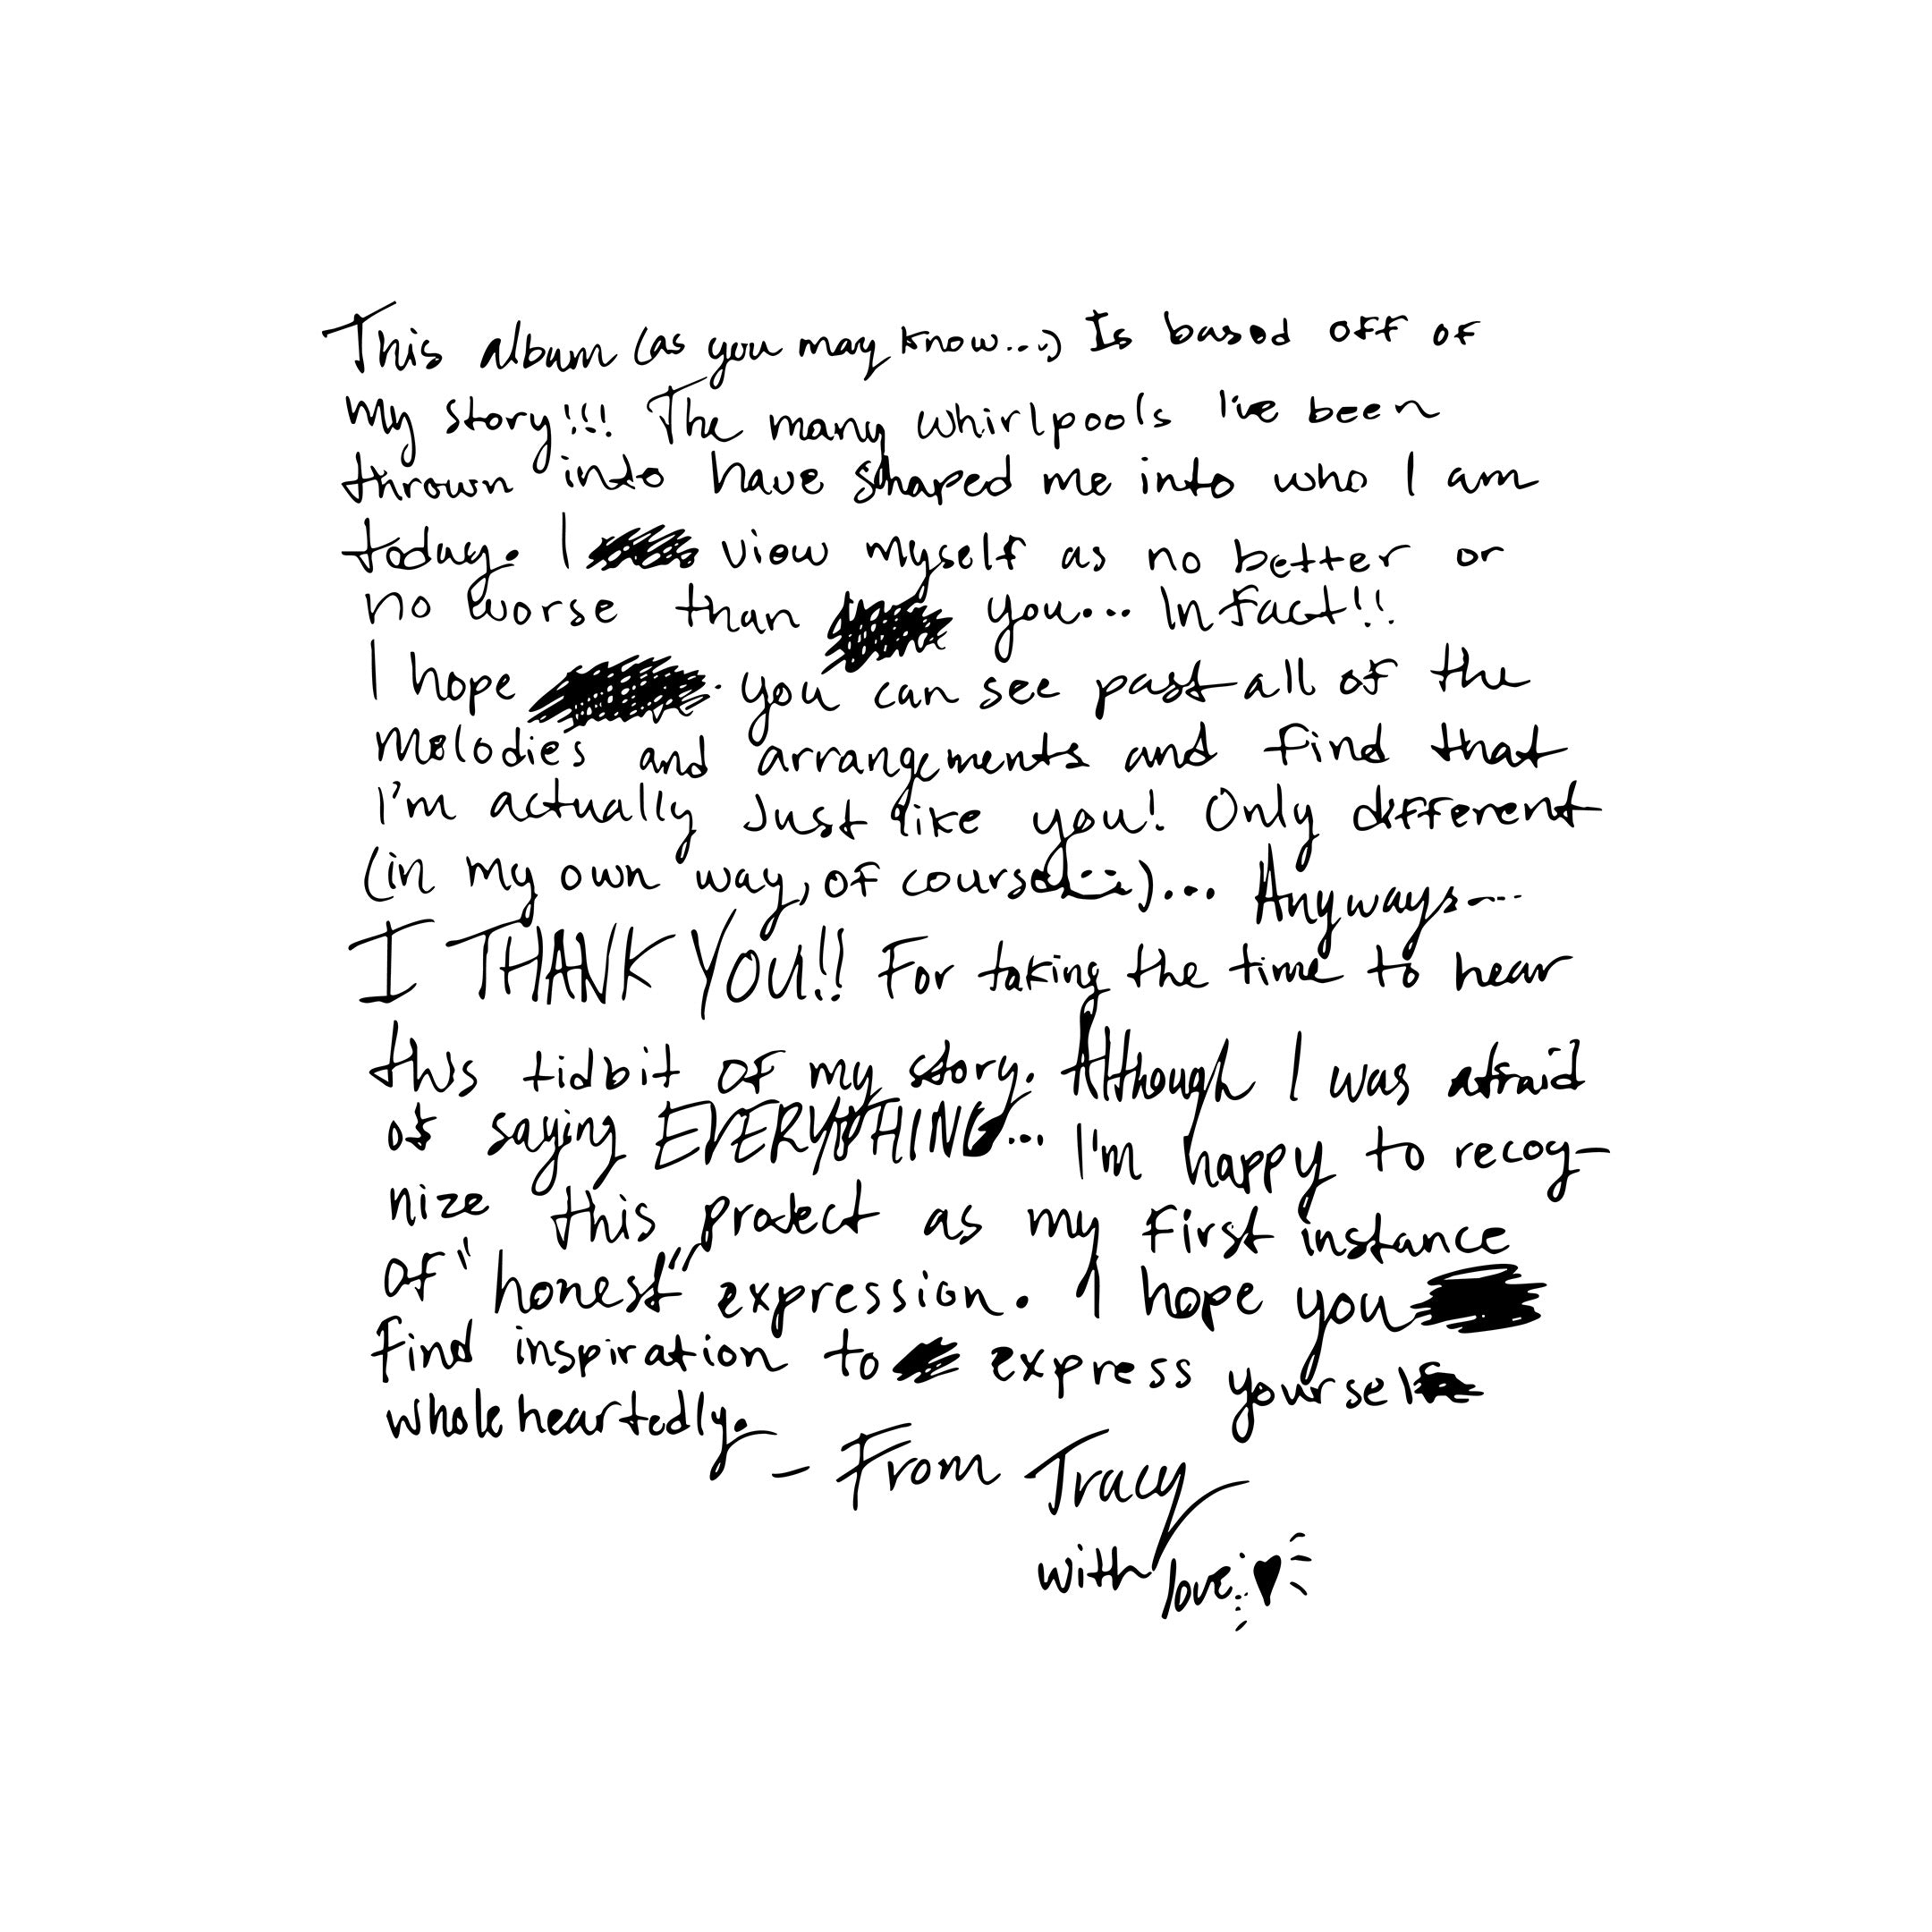 This album (as you may know...) Is based off of
My story!!! The many whirlpools I've been
thrown into have shaped me into who I am
today. I view myself as no better or
no worse than you... Infact!!
I hope you can see past all of the
melodies and arrangements and find that
i'm actually just like you! Only different
(in my own way, of course...;). . . Anyways....
I THANK YOU!! For taking the time to hear
this tidbit of my story. Though I was afraid
of saying EVERYTHING... I'm happy to recog-
nize this project as my first instance
of "honest" expression. I hope you
find inspiration to express yourself
wholeheartedly.
— From Tracy
with love! ♥